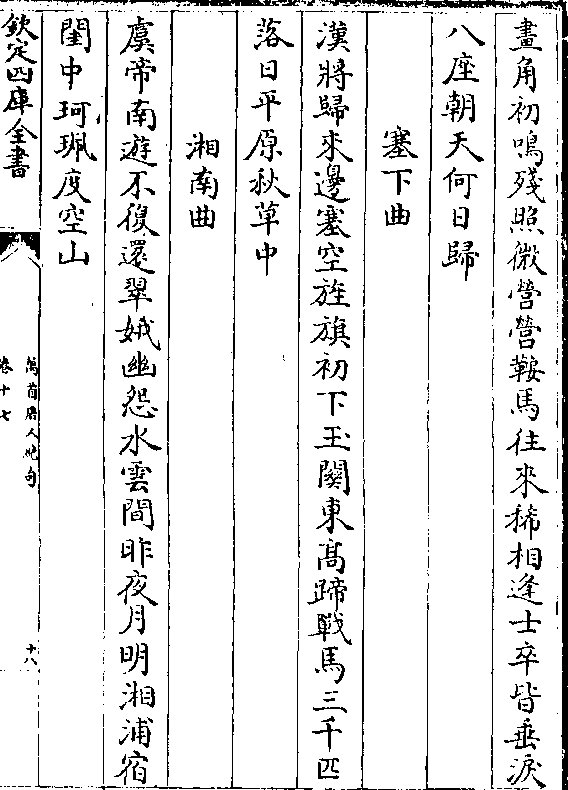 畫角初鳴殘照微營營鞍馬往來稀相逢士卒皆垂淚
八座朝天何日歸
塞下曲
漢將歸來邊塞空旌旗初下玉關東高蹄戰馬三千匹
落日平原秋草中
湘南曲
虞帝南遊不復還翠娥幽怨水雲間昨夜月明湘浦宿
閨中珂珮度空山
欽定四庫全書
萬首唐人絶句
卷十七
十八